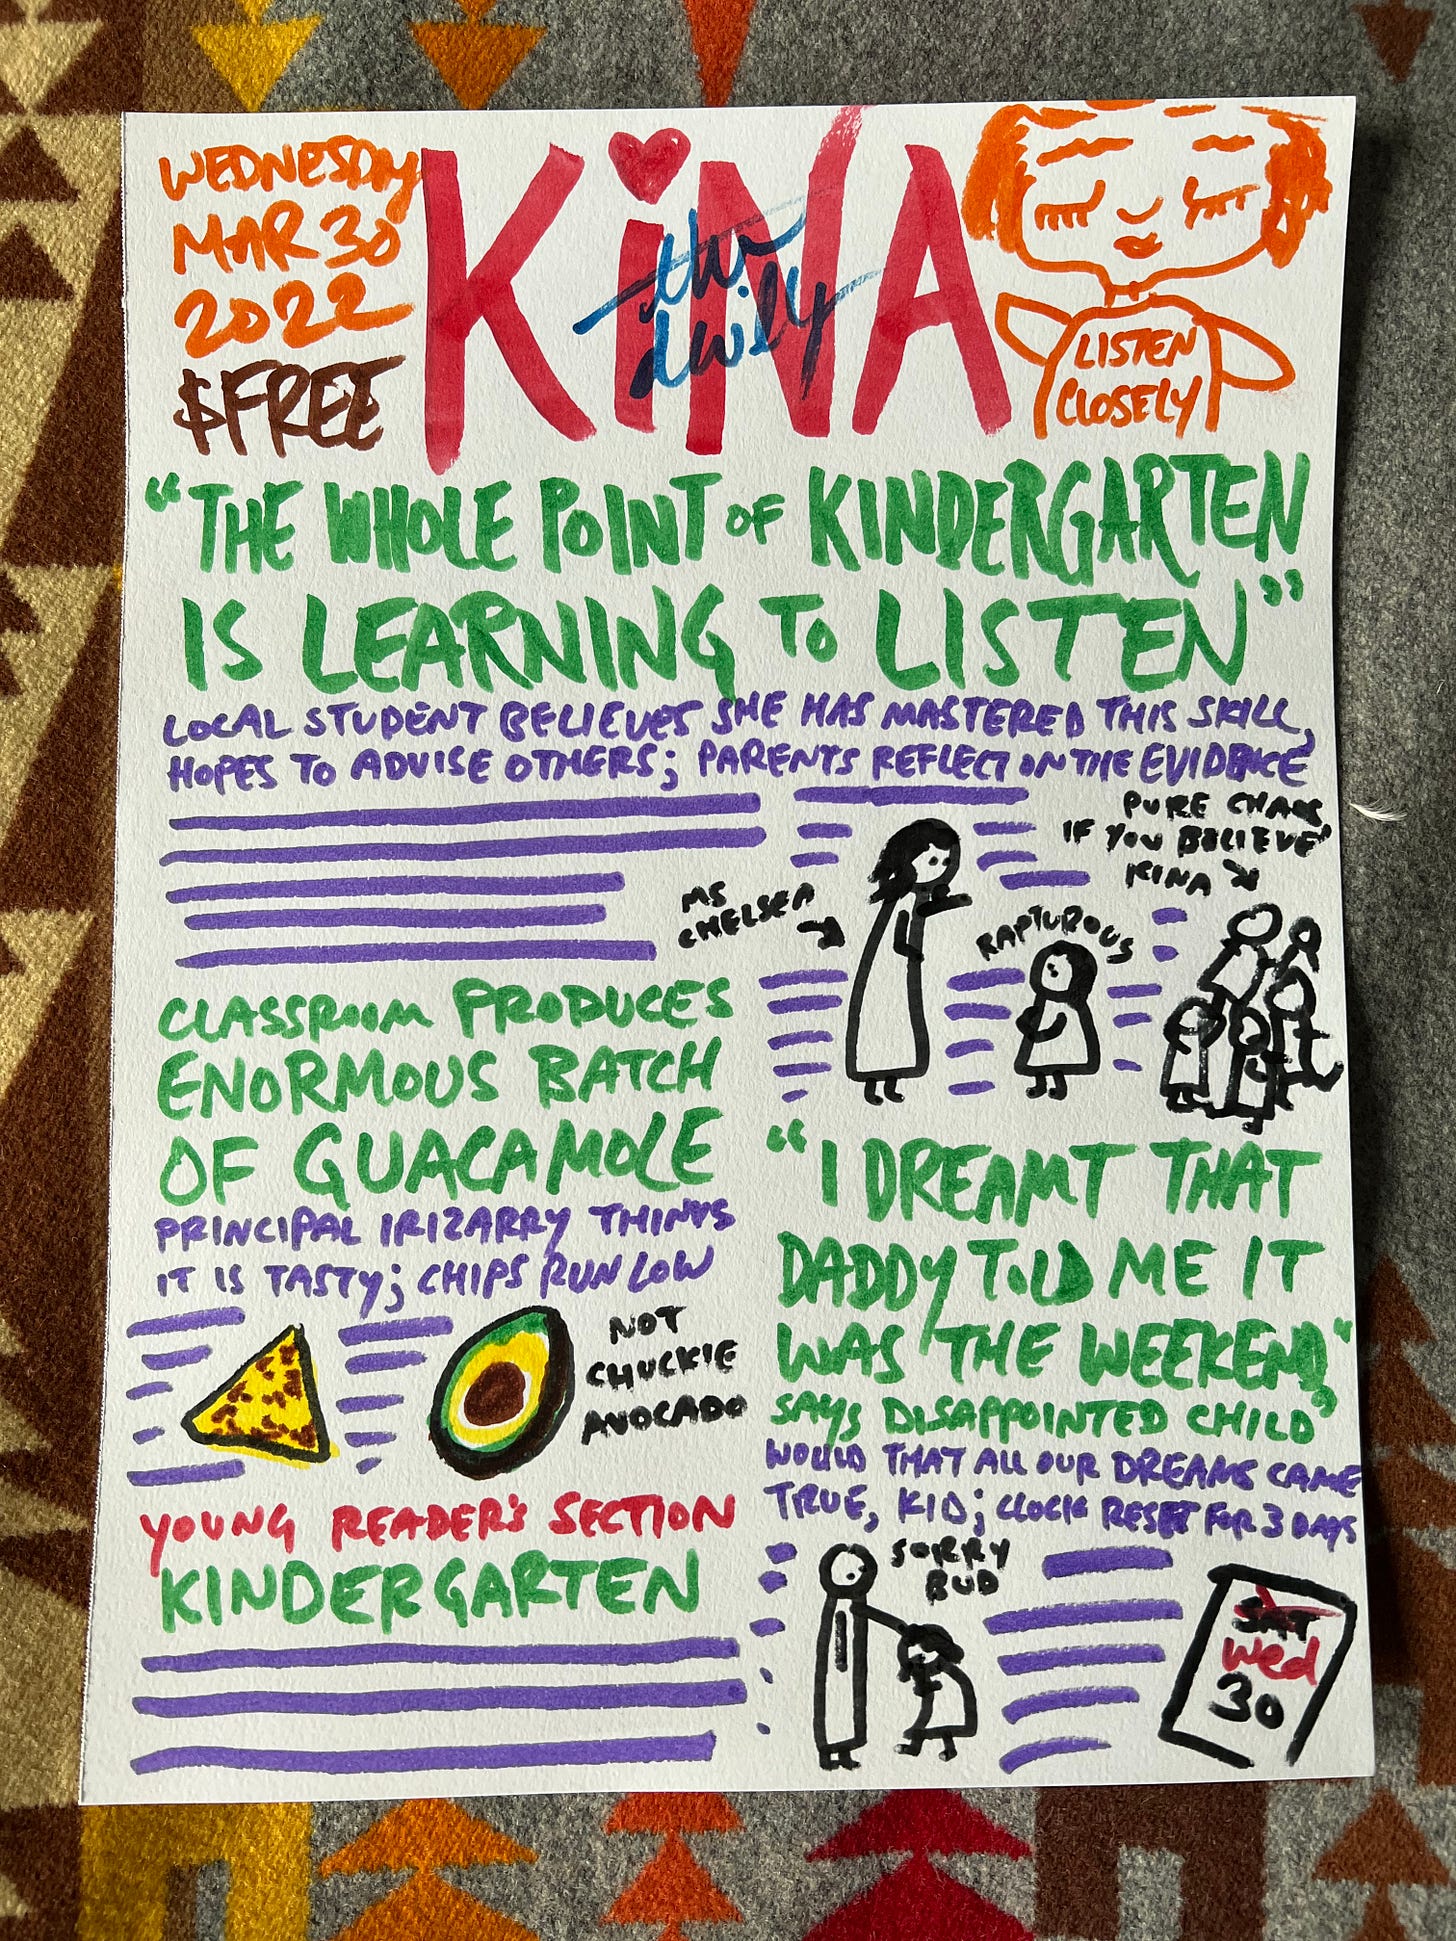 WEDNESDAY
MAR 30
2022
$FREE
KiNA
the daily
LISTEN
CLOSELY
"THE WHOLE POINT OF KINDERGARTEN
IS LEARNING TO LISTEN"
LOCAL STUDENT BELIEVES SHE HAS MASTERED THIS SKILL,
HOPES TO ADVISE OTHERS; PARENTS REFLECT ON THE EVIDENCE
MS
CHELSEA
RAPTUROUS
PURE CHAOS
IF YOU BELIEVE
KINA
CLASSROOM PRODUCES
ENORMOUS BATCH
OF GUACAMOLE
PRINCIPAL IRIZARRY THINKS
IT IS TASTY; CHIPS RUN LOW
NOT
CHUCKIE
AVOCADO
YOUNG READER'S SECTION
KINDERGARTEN
"I DREAMT THAT
DADDY TOLD ME IT
WAS THE WEEKEND,"
SAYS DISAPPOINTED CHILD
WOULD THAT ALL OUR DREAMS CAME
TRUE, KID; CLOCK RESET FOR 3 DAYS
SORRY
BUD
SAT
Wed
30